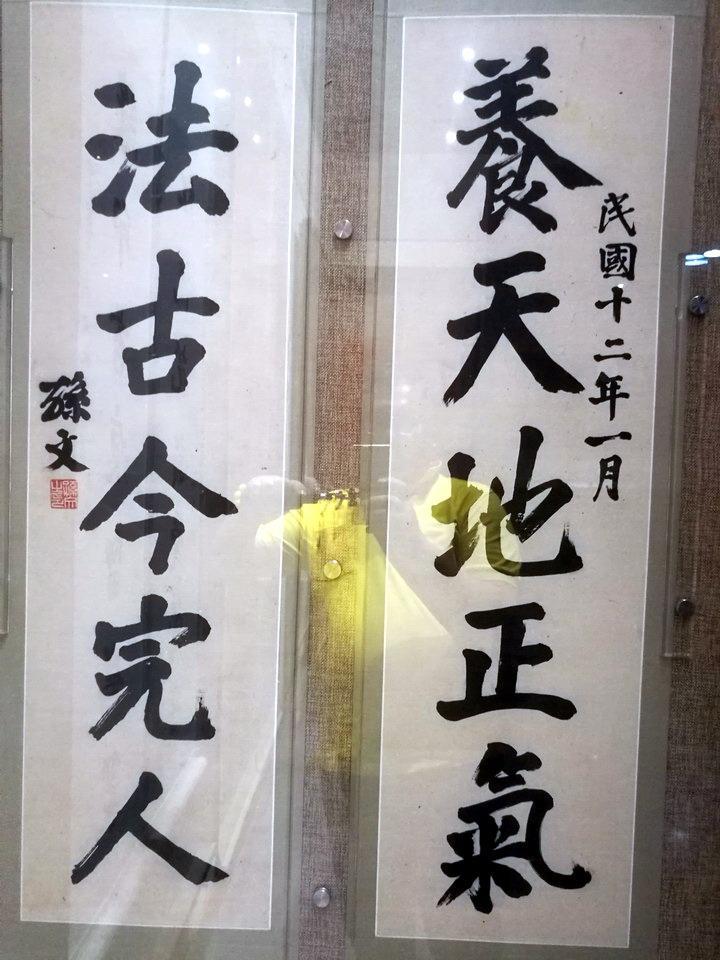 養天地正氣
民國十二年一月
法古今完人
孫文